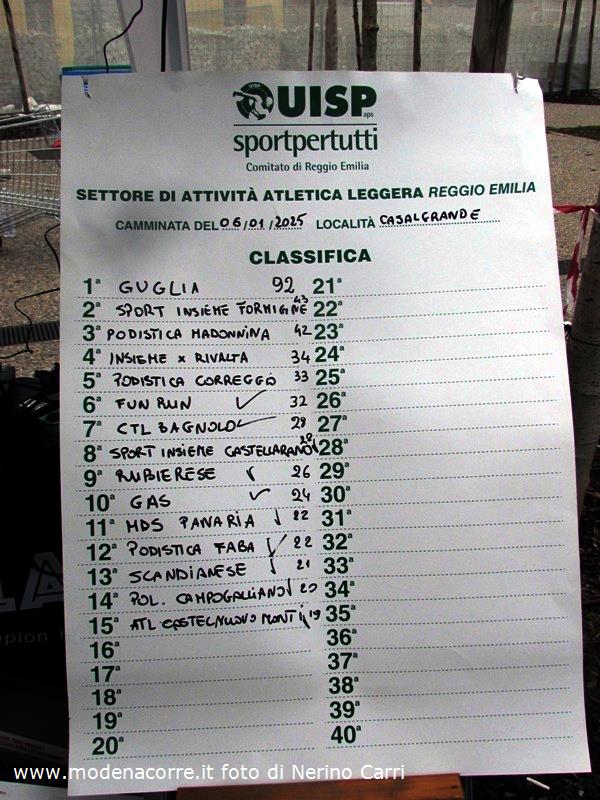 UISP aps
sportpertutti
Comitato di Reggio Emilia
SETTORE DI ATTIVITÀ ATLETICA LEGGERA REGGIO EMILIA
CAMMINATA DEL 06/01/2025 LOCALITÀ CASALGRANDE
CLASSIFICA
1ª GUGLIA 92
2ª SPORT INSIEME FORMIGINE 43
3ª PODISTICA MADONNINA 42
4ª INSIEME X RIVALTA 34
5ª PODISTICA CORREGGIO 33
6ª FUN RUN ✓ 32
7ª CTL BAGNOLO ✓ 28
8ª SPORT INSIEME CASTELLARANO ✓
9ª RUBIERESE ✓ 26
10ª GAS ✓ 24
11ª MDS PANARIA ✓ 22
12ª PODISTICA FABA ✓ 22
13ª SCANDIANESE ✓ 21
14ª POL. CAMPOGALLIANO ✓ 20
15ª ATL CASTELNUOVO MONTI ✓ 19
16ª
17ª
18ª
19ª
20ª
21ª
22ª
23ª
24ª
25ª
26ª
27ª
28ª
29ª
30ª
31ª
32ª
33ª
34ª
35ª
36ª
37ª
38ª
39ª
40ª
www.modenacorre.it foto di Nerino Carri